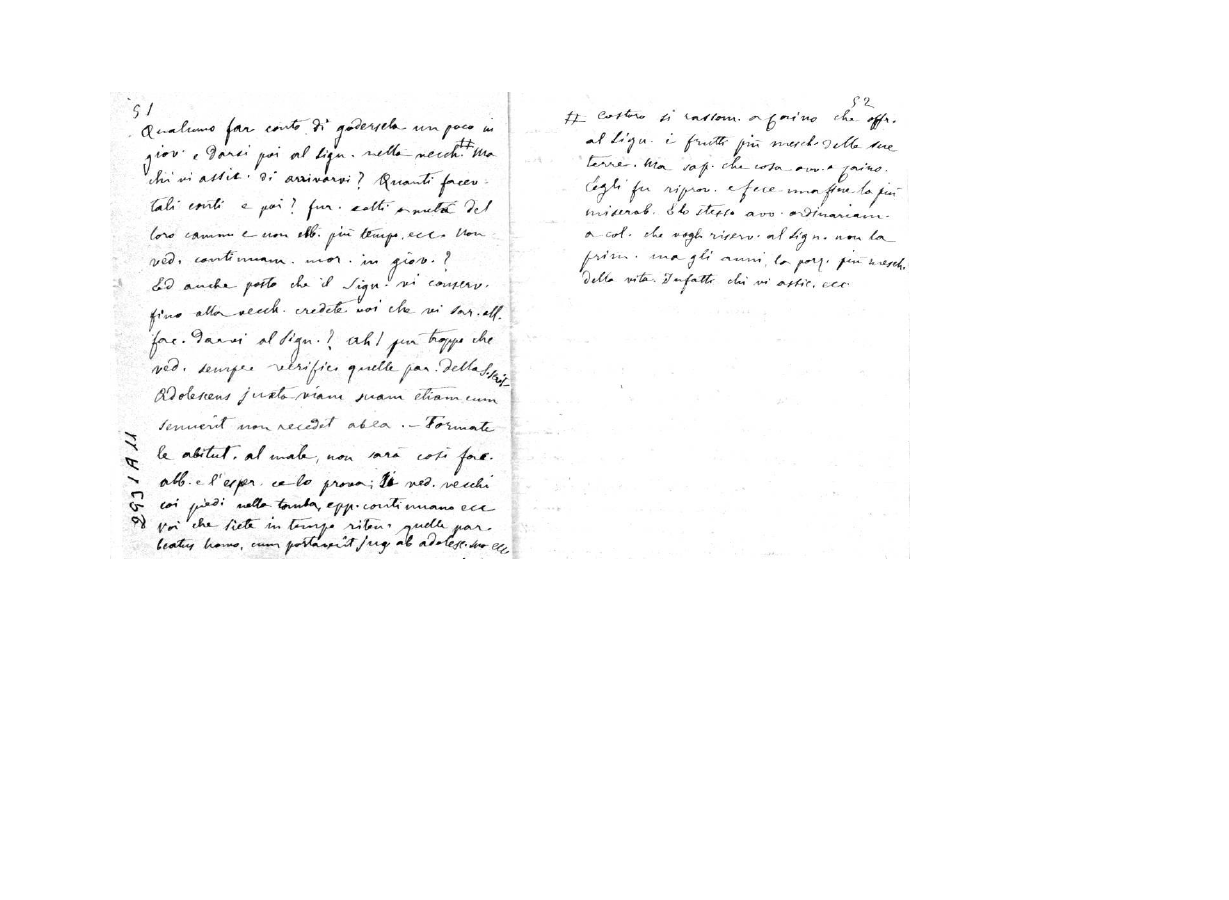 51
Qualcuno far conto di godersela un poco in
giov. e darsi poi al Sign. nella vecch. # Ma
chi vi assic. di arrivarvi? Quanti facev.
tali conti e poi? fur. colti a metà del
loro cammi e non ebb. più tempo, ecc. Non
ved. continuam. mor. in giov.?
Ed anche posto che il Sign. vi conserv.
fino alla vecch. credete voi che vi sar. all.
fac. darvi al Sign.? Ah! pur troppo che
ved. sempre verifica quelle par. della S. Scrit.
Adolescens juxta viam suam etiam cum
senuerit non recedet ab ea. - Formate
le abitud. al male, non sarà così fac.
abb. e l'esper. ce lo prova; Si ved. vecchi
coi piedi nella tomba, epp. continuano ecc
Voi che siete in tempo riten. quelle par.
beatus homo, cum portaverit jug. ab adolesc. suo ecc
52
# Costoro si rassom. a Caino che offr.
al Sign. i frutti più mesch. delle sue
terre. Ma sap. che cosa avv. a Caino.
Egli fu riprov. e fece una fine la più
miserab. E lo stesso avv. ordinariam.
a col. che vogl. riserv. al Sign. non la
prim. ma gli anni, la porz. più mesch.
della vita. Infatti chi vi assic. ecc